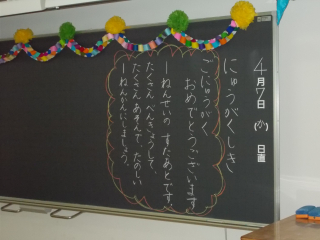 4月7日(か)日直
にゅうがくしき
ごにゅうがく
おめでとうございます
一ねんせいの すたあとです。
たくさん べんきょうして、
たくさん あそんで、たのしい
一ねんかんにしましょう。